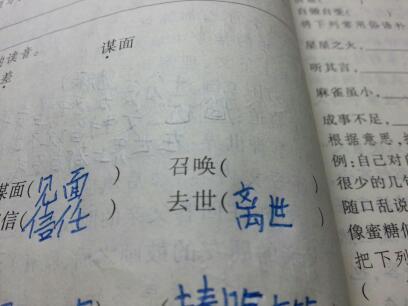 的读音。
谋面
差
谋面(见面)
召唤(
信(信任)
去世(离世)
自顾自爱(
将下列常用俗语补
星星之火,
听其言,
麻雀虽小,
成事不足,
根据意思,
例:自己对
很少的几
随口乱说
像蜜糖
把下列
(